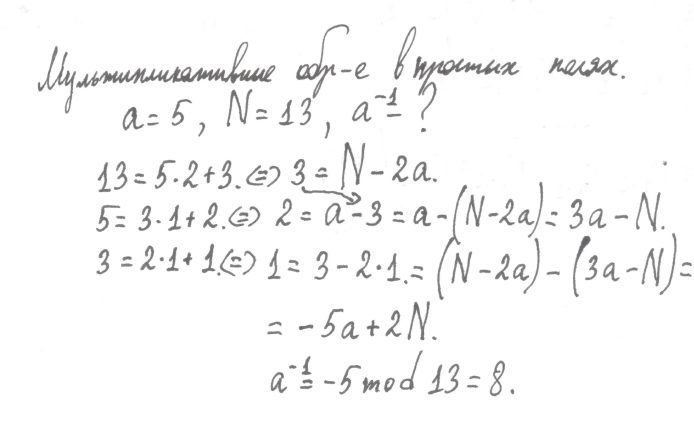 Мультипликативные обр-е в простых полях.
a = 5, N = 13, a⁻¹ - ?
13 = 5·2 + 3. ⇔ 3 = N - 2a.
5 = 3·1 + 2. ⇔ 2 = a - 3 = a - (N - 2a) = 3a - N.
3 = 2·1 + 1. ⇔ 1 = 3 - 2·1. = (N - 2a) - (3a - N) =
= -5a + 2N.
a⁻¹ = -5 mod 13 = 8.